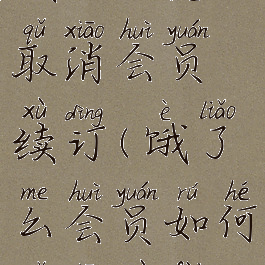 qǔ xiāo huì yuán
取消会员
xù dìng è liǎo
续订(饿了
me huì yuán rú hé
么会员如何